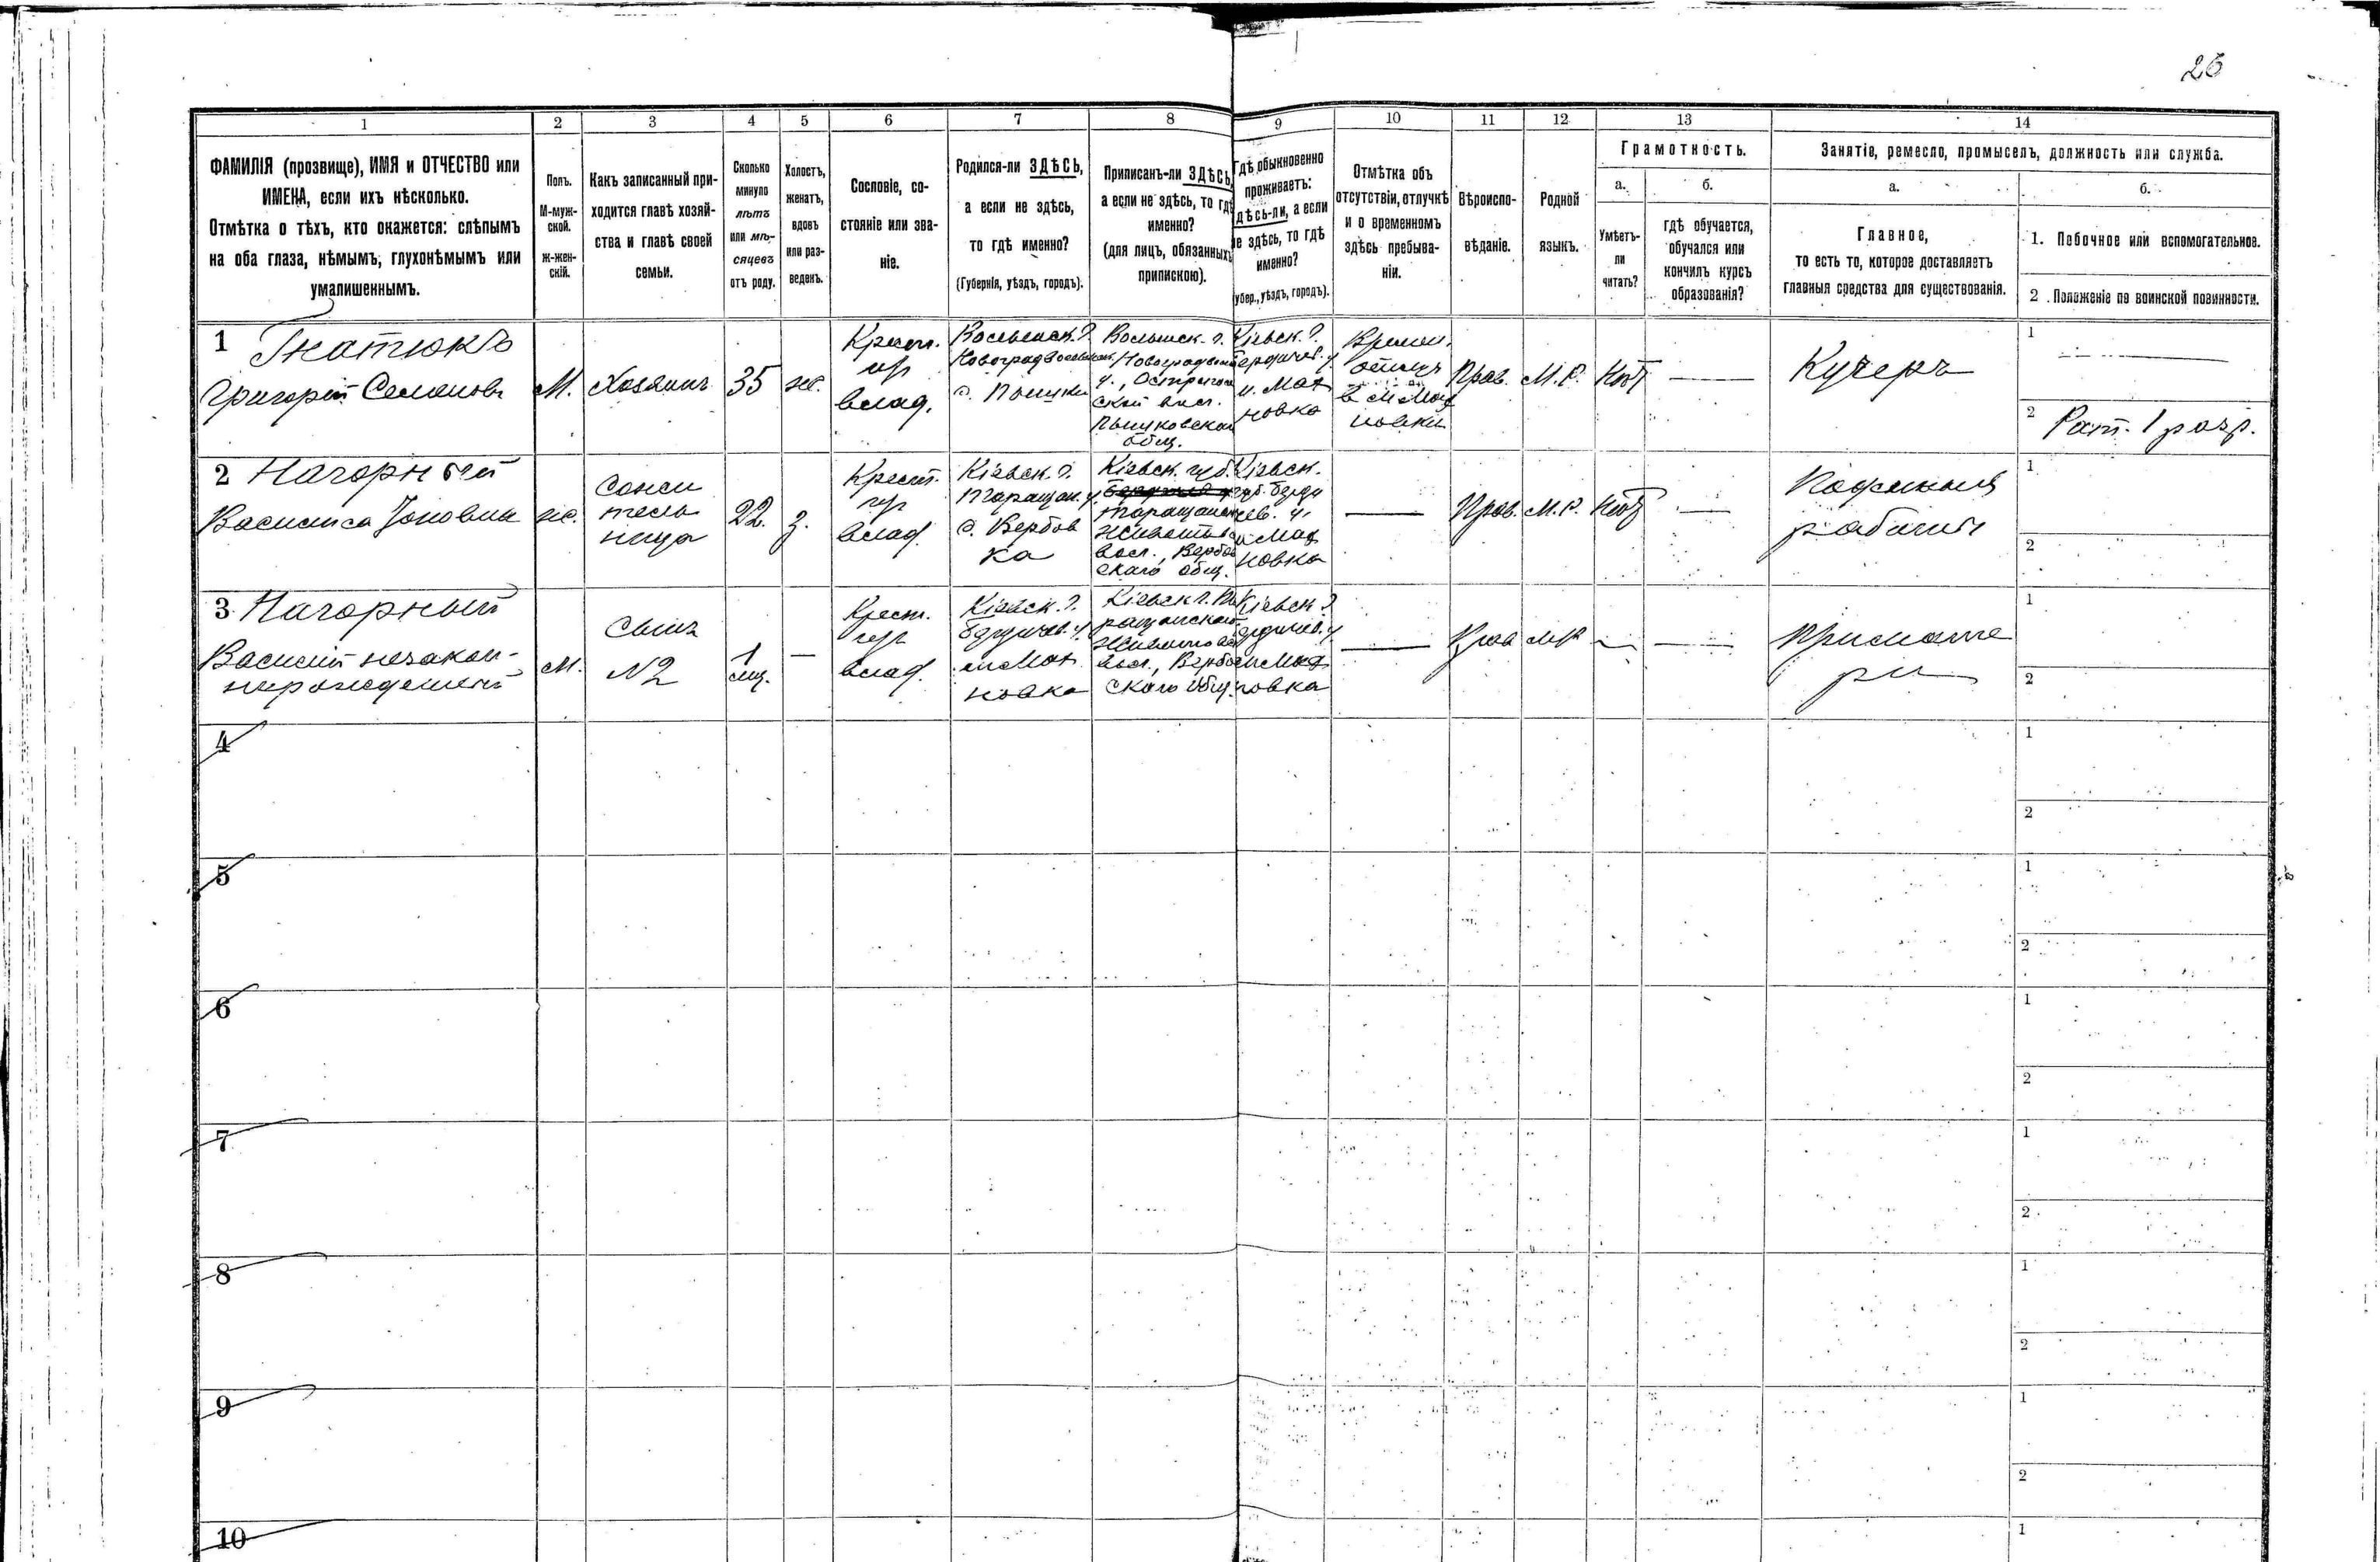 26
1
2
3
4
5
6
7
8
9
10
11
12
13
14
ФАМИЛІЯ (прозвище), ИМЯ и ОТЧЕСТВО или
ИМЕНА, если ихъ нѣсколько.
Отмѣтка о тѣхъ, кто окажется: слѣпымъ
на оба глаза, нѣмымъ, глухонѣмымъ или
умалишеннымъ.
Полъ.
М-муж-
ской.
ж-жен-
скій.
Какъ записанный при-
ходится главѣ хозяй-
ства и главѣ своей
семьи.
Сколько
минуло
лѣтъ
или мѣ-
сяцевъ
отъ роду.
Холостъ,
женатъ,
вдовъ
или раз-
веденъ.
Сословіе, со-
стояніе или зва-
ніе.
Родился-ли ЗДѢСЬ,
а если не здѣсь,
то гдѣ именно?
(Губернія, уѣздъ, городъ).
Приписанъ-ли ЗДѢСЬ,
а если не здѣсь, то гдѣ
именно?
(для лицъ, обязанныхъ
припискою).
Гдѣ обыкновенно
проживаетъ:
здѣсь-ли, а если
не здѣсь, то гдѣ
именно?
(губер., уѣздъ, городъ).
Отмѣтка объ
отсутствіи, отлучкѣ
и о временномъ
здѣсь пребыва-
ніи.
Вѣроиспо-
вѣданіе.
Родной
языкъ.
Грамотность.
а.
Умѣетъ-
ли
читать?
б.
гдѣ обучается,
обучался или
кончилъ курсъ
образованія?
Занятіе, ремесло, промыселъ, должность или служба.
а.
Главное,
то есть то, которое доставляетъ
главныя средства для существованія.
б.
1. Побочное или вспомогательное.
2. Положеніе по воинской повинности.
1 Гнатюкъ
Григорій Семеновъ
М.
Хозяинъ
35
ж.
Крест.
из
влад.
Волынск. г.
Новоградволынск.
с.
Волынск. г.
Новоградвол
у.,
ской вол.
общ.
Кіевск. г.
Бердичев. у.
м. Мах
новка
Времен.
отлуч
в м. Мах
новки
Прав.
М. Р.
Нѣт
Кучеръ
1
2 Рат. 1 разр.
2 Нагорный
Василиса Іоновна
ж.
Сожи
тель
ница
22.
з.
Крест.
из
влад.
Кіевск. г.
Таращан. у.
с. Вербов
ка
Кіевск. губ.
Таращанск
вол., Вербов
скаго общ.
Кіевск.
губ. Берди
чев. у.
м. Мах
новка
Прав.
М. Р.
Нѣт
Поденный
рабочій
1
2
3 Нагорный
Василій незакон-
норожденный
М.
Сынъ
N2
1
мц.
Крест.
из
влад.
Кіевск. г.
Бердичев. у.
м. Мах
новка
Кіевск. г. Та
ращанскаго
вол., Вербов
скаго общ.
Кіевск. г.
Бердичев. у.
м. Мах
новка
Прав
М Р
При мате
ри
1
2
4
1
2
5
1
2
6
1
2
7
1
2
8
1
2
9
1
2
10
1